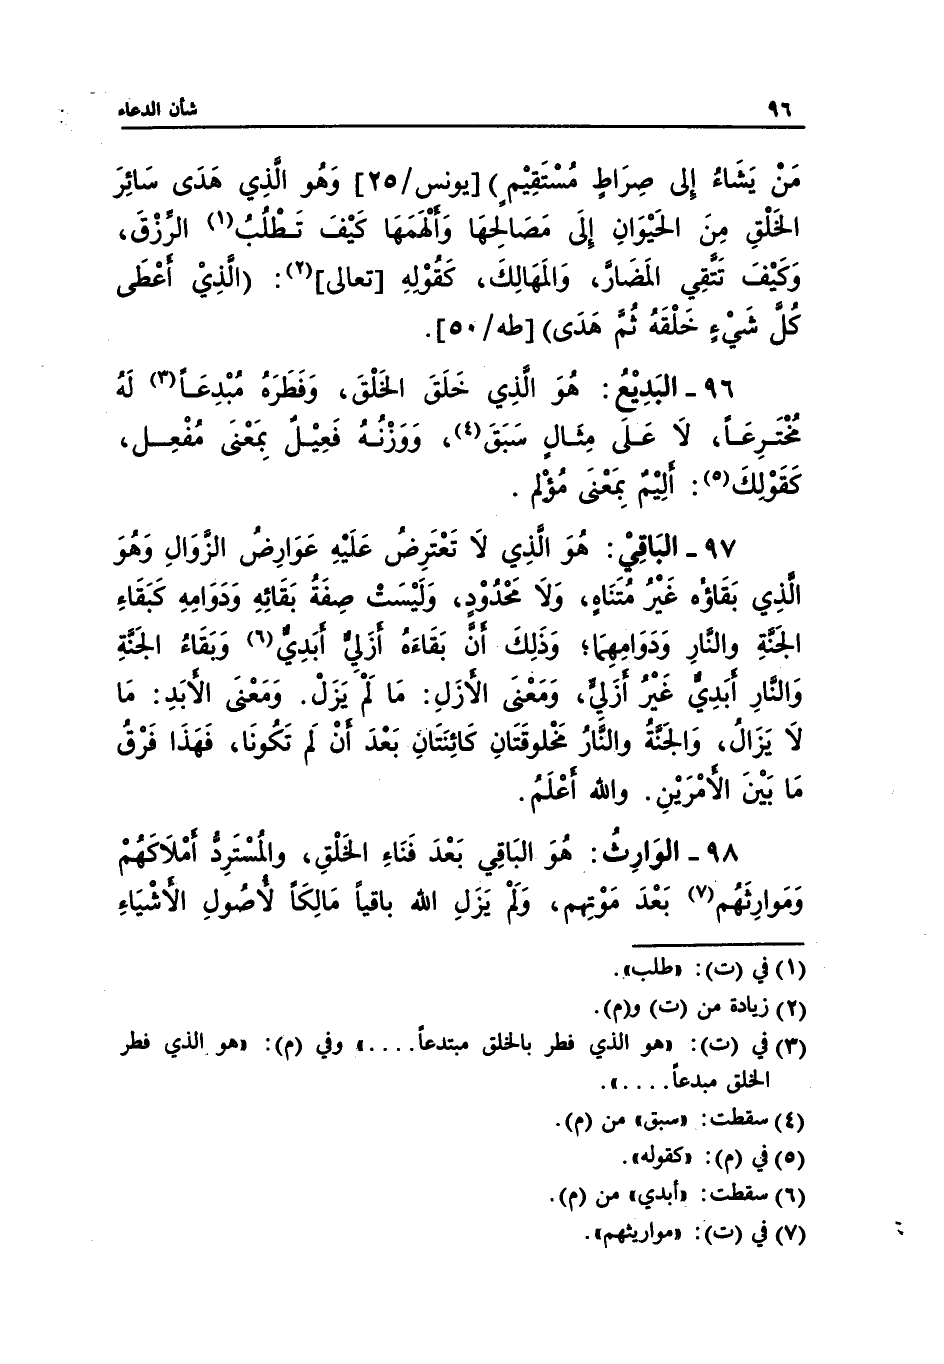 ٩٦ شأن الدعاء
مَنْ يَشَاءُ إِلى صِرَاطٍ مُسْتَقِيْمٍ) [يونس/٢٥] وَهُو الَّذِي هَدَى سَائِرَ
الخَلْقِ مِنَ الحَيْوَانِ إِلَى مَصَالِحِهَا وَأَلْهَمَهَا كَيْفَ تَـطْلُبُ(١) الرِّزْقَ،
وَكَيْفَ تَتَّقِي المَضَارَّ، وَالمَهَالِكَ، كَقَوْلِهِ [تعالى](٢): (الَّذِيْ أَعْطَى
كُلَّ شَيْءٍ خَلْقَهُ ثُمَّ هَدَى) [طه/٥٠].
٩٦ - البَدِيْعُ: هُوَ الَّذِي خَلَقَ الخَلْقَ، وَفَطَرَهُ مُبْدِعَـاً(٣) لَهُ
مُخْتَـرِعَـاً، لَا عَـلَى مِثَـالٍ سَبَقَ(٤)، وَوَزْنُـهُ فَعِيْـلٌ بِمَعْنَى مُفْعِـل،
كَقَوْلِكَ(٥): أَلِيْمٌ بِمَعْنَى مُؤْلم .
٩٧ - البَاقِيْ: هُوَ الَّذِي لَا تَعْتَرِضُ عَلَيْهِ عَوَارِضُ الزَّوَالِ وَهُوَ
الَّذِي بَقَاؤُه غَيْرُ مُتَنَاهٍ، وَلَا مَحْدُوْدٍ، وَلَيْسَتْ صِفَةُ بَقَائِهِ وَدَوَامِهِ كَبَقَاءِ
الجَنَّةِ والنَّارِ وَدَوَامِهِمَا؛ وَذَلِكَ أَنَّ بَقَاءَهُ أَزَلِيٌّ أَبَدِيٌّ(٦) وَبَقَاءُ الجَنَّةِ
وَالنَّارِ أَبَدِيٌّ غَيْرُ أَزَلِيٍّ، وَمَعْنَى الأَزَلِ: مَا لَمْ يَزَلْ. وَمَعْنَى الأَبَدِ: مَا
لَا يَزَالُ، وَالجَنَّةُ والنَّارُ مَخْلوقَتَانِ كَائِنَتَانِ بَعْدَ أَنْ لَم تَكُونَا، فَهَذَا فَرْقُ
مَا بَيْنَ الأَمْرَيْنِ. والله أَعْلَمُ.
٩٨ - الوَارِثُ: هُوَ البَاقِي بَعْدَ فَنَاءِ الخَلْقِ، والمُسْتَرِدُّ أَمْلَاكَهُمْ
وَمَوارِثَهُم(٧) بَعْدَ مَوْتِهِم، وَلَمْ يَزَلِ الله باقياً مَالِكَاً لُأصُولِ الأَشْيَاءِ
(١) في (ت): «طلب».
(٢) زيادة من (ت) و(م).
(٣) في (ت): «هو الذي فطر بالخلق مبتدعاً....» وفي (م): «هو الذي فطر
الخلق مبدعاً....».
(٤) سقطت: «سبق» من (م).
(٥) في (م): «كقوله».
(٦) سقطت: «أبدي» من (م).
(٧) في (ت): «مواريثهم».